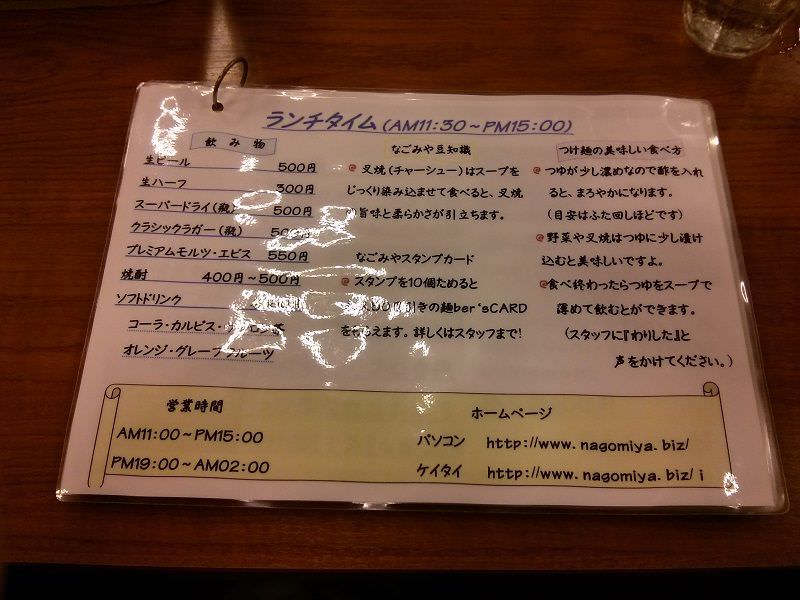 ランチタイム(AM11:30～PM15:00)
飲み物
生ビール 500円
生ハーフ 300円
スーパードライ(瓶) 500円
クラシックラガー(瓶)
プレミアムモルツ・エビス 550円
焼酎 400円～500円
ソフトドリンク
コーラ・カルピス・
オレンジ・グレープフルーツ
なごみや豆知識
叉焼(チャーシュー)はスープを
じっくり染み込ませて食べると、叉焼
旨味と柔らかさが引立ちます。
なごみやスタンプカード
スタンプを10個ためると
引きの麺ber'sCARD
を もらえます。詳しくはスタッフまで!
つけ麺の美味しい食べ方
つゆが少し濃めなので酢を入れ
ると、まろやかになります。
(目安はふた回しほどです)
野菜や叉焼はつゆに少し漬け
込むと美味しいですよ。
食べ終わったらつゆをスープで
薄めて飲むとができます。
(スタッフに『わりした』と
声をかけてください。)
営業時間
AM11:00～PM15:00
PM19:00～AM02:00
ホームページ
パソコン http://www.nagomiya.biz/
ケイタイ http://www.nagomiya.biz/i